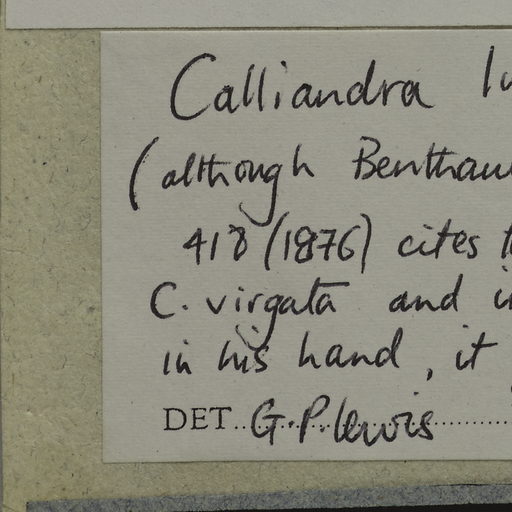 Calliandra
(although
418 (1876) cites
C. virgata and
in his hand, it
DET. G.P. Lewis